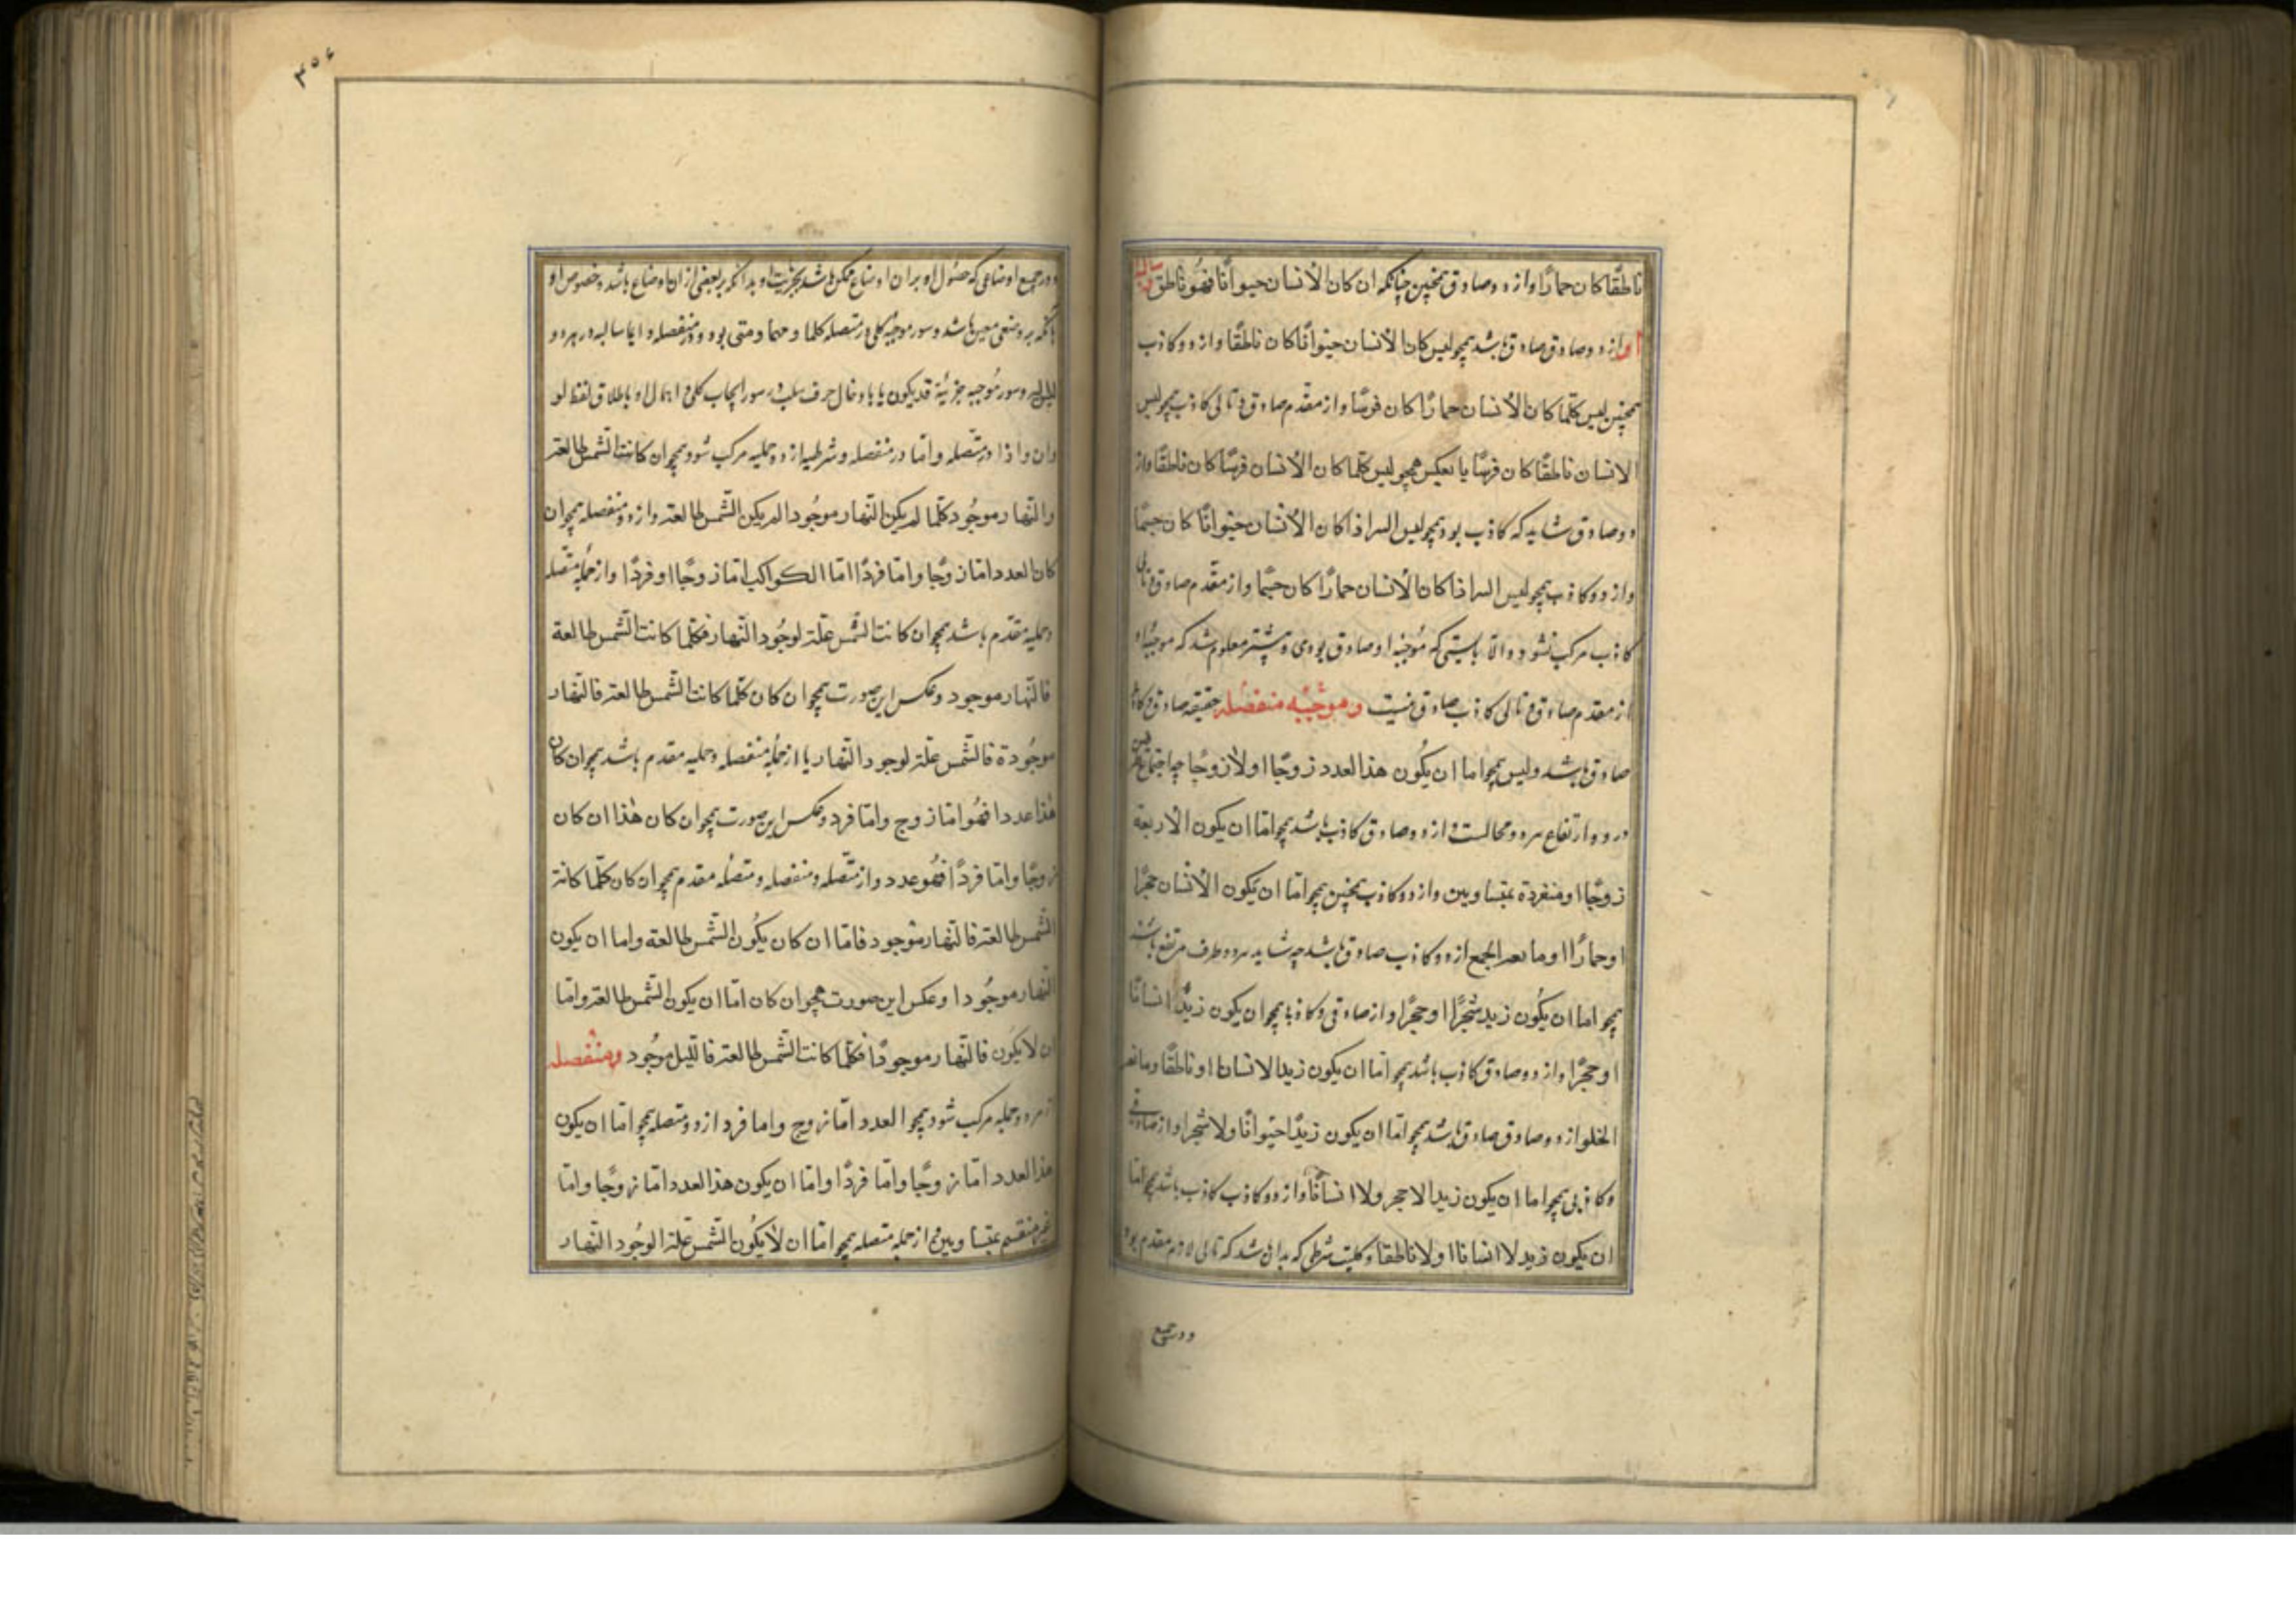 ناطقًا كان حمارًا و از دو صادق همچنین چنانکه ان كان الأنسان حيوانًا فهُو ناطق و سالبه
او از دو صادق صادق باشد همچو ليس كان الأنسان حيوانًا كان ناطقًا و از دو کاذب
همچنین ليس كلّما كان الأنسان حمارًا كان فرسًا و از مقدّم صادق و تالی کاذب همچو ليس
الانسان ناطقًا كان فرسًا یا بعکس همچو ليس كلّما كان الأنسان فرسًا كان ناطقًا و از
دو صادق شاید که کاذب بود همچو ليس البته اذا كان الأنسان حيوانًا كان جسمًا
و از دو کاذب همچو ليس البته اذا كان الأنسان حمارًا كان جسمًا و از مقدّم صادق و تالی
کاذب مرکب نشود و الّا بایستی که مُوجبه او صادق بودی و پیشتر معلوم شد که موجبه او
از مقدم صادق و تالی کاذب صادق نیست و موجبه منفصله حقیقه صادق و کاذب
صادق باشد و ليس همچو اما ان يكُون هذا العدد زوجًا او لا زوجًا چه اجتماع
در دو و ارتفاع هر دو محالست و از دو صادق کاذب باشد همچو امّا ان يكون الأربعة
زوجًا او منفردة بمتساويين و از دو کاذب همچنین همچو امّا ان يكون الأنسان حجرًا
او حمارًا او مانعة الجمع از دو کاذب صادق باشد چه شاید هر دو طرف مرتفع باشند
همچو اما ان يكُون زيد شجرًا او حجرًا و از صادقی و کاذبی همچو ان يكون زيدٌ انسانًا
او حجرًا و از دو صادق کاذب باشد همچو امّا ان يكون زيد الانسانا او ناطقًا و مانعة
الخلو از دو صادق صادق باشد همچو امّا ان يكون زيدًا حيوانًا ولا شجرا و از صادقی
و کاذبی همچو اما ان يكون زيد الاحجر ولا انسانًا و از دو کاذب کاذب باشد همچو امّا
ان يكون زيد لا انسانا او لا ناطقا و کلیت شرطی که بدان شد که تالی لازم مقدم بود
و در جمیع
و در جمیع اوضاعی که حصُول او بر ان اوضاع ممکن باشد و جزئیت او بدانکه بر بعضی از ان اوضاع باشد و خصوص او
بانکه بر وضعی معین باشد و سور موجبه کلی در متصله كلما و مهما و متى بود و در منفصله دایما سالبه در هر دو
ليس البته و سور مُوجبه جزئیة قد يكون یا باد خال حرف سلب بر سور ایجاب کلی و اهمال او باطلاق لفظ لو
و ان و اذا در متصله و امّا در منفصله و شرطیه از دو حملیه مرکب شود همچو ان كانت الشمس طالعة
والنهار موجُود كلّما لم يكن النهار موجُودا لم يكن الشمس طالعة و از دو منفصله همچو ان
كان العدد امّا زوجًا وامّا فردًا امّا الكواكب امّا زوجًا او فردًا و از حملیه متّصله
و حملیه مقدّم باشد همچو ان كانت الشمس علّة لوجُود النهار فكلّما كانت الشمس طالعة
فالنهار موجود و عکس این صورت همچو ان كان كلّما كانت الشمس طالعة فالنهار
موجُودة فالشمس علّة لوجود النهار یا از حملیه منفصله و حملیه مقدم باشد همچو ان كان
هٰذا عددا فهُو امّا زوج وامّا فرد و عکس این صورت همچو ان كان هٰذا ان كان
زوجًا وامّا فردًا فهُو عدد و از متّصله و منفصله و متصله مقدم همچو ان كان كلّما كانت
الشمس طالعة فالنهار موجود فامّا ان كان يكُون الشمس طالعه واما ان يكون
النهار موجُودا و عکس این صورت همچو ان كان امّا ان يكون الشمس طالعة وامّا
ان لا يكُون فالنهار موجودًا فكلّما كانت الشمس طالعة فالليل موجُود و منفصله
از هر دو حملیه مرکب شود همچو العدد امّا زوج واما فرد از دو متصله همچو امّا ان يكون
هذا العدد امّا زوجًا وامّا فردًا وامّا ان يكون هذا العدد امّا زوجًا وامّا
غير منقسم بمتساويين و از حملیه متصله همچو امّا ان لا يكُون الشمس علّة الوجُود النهار